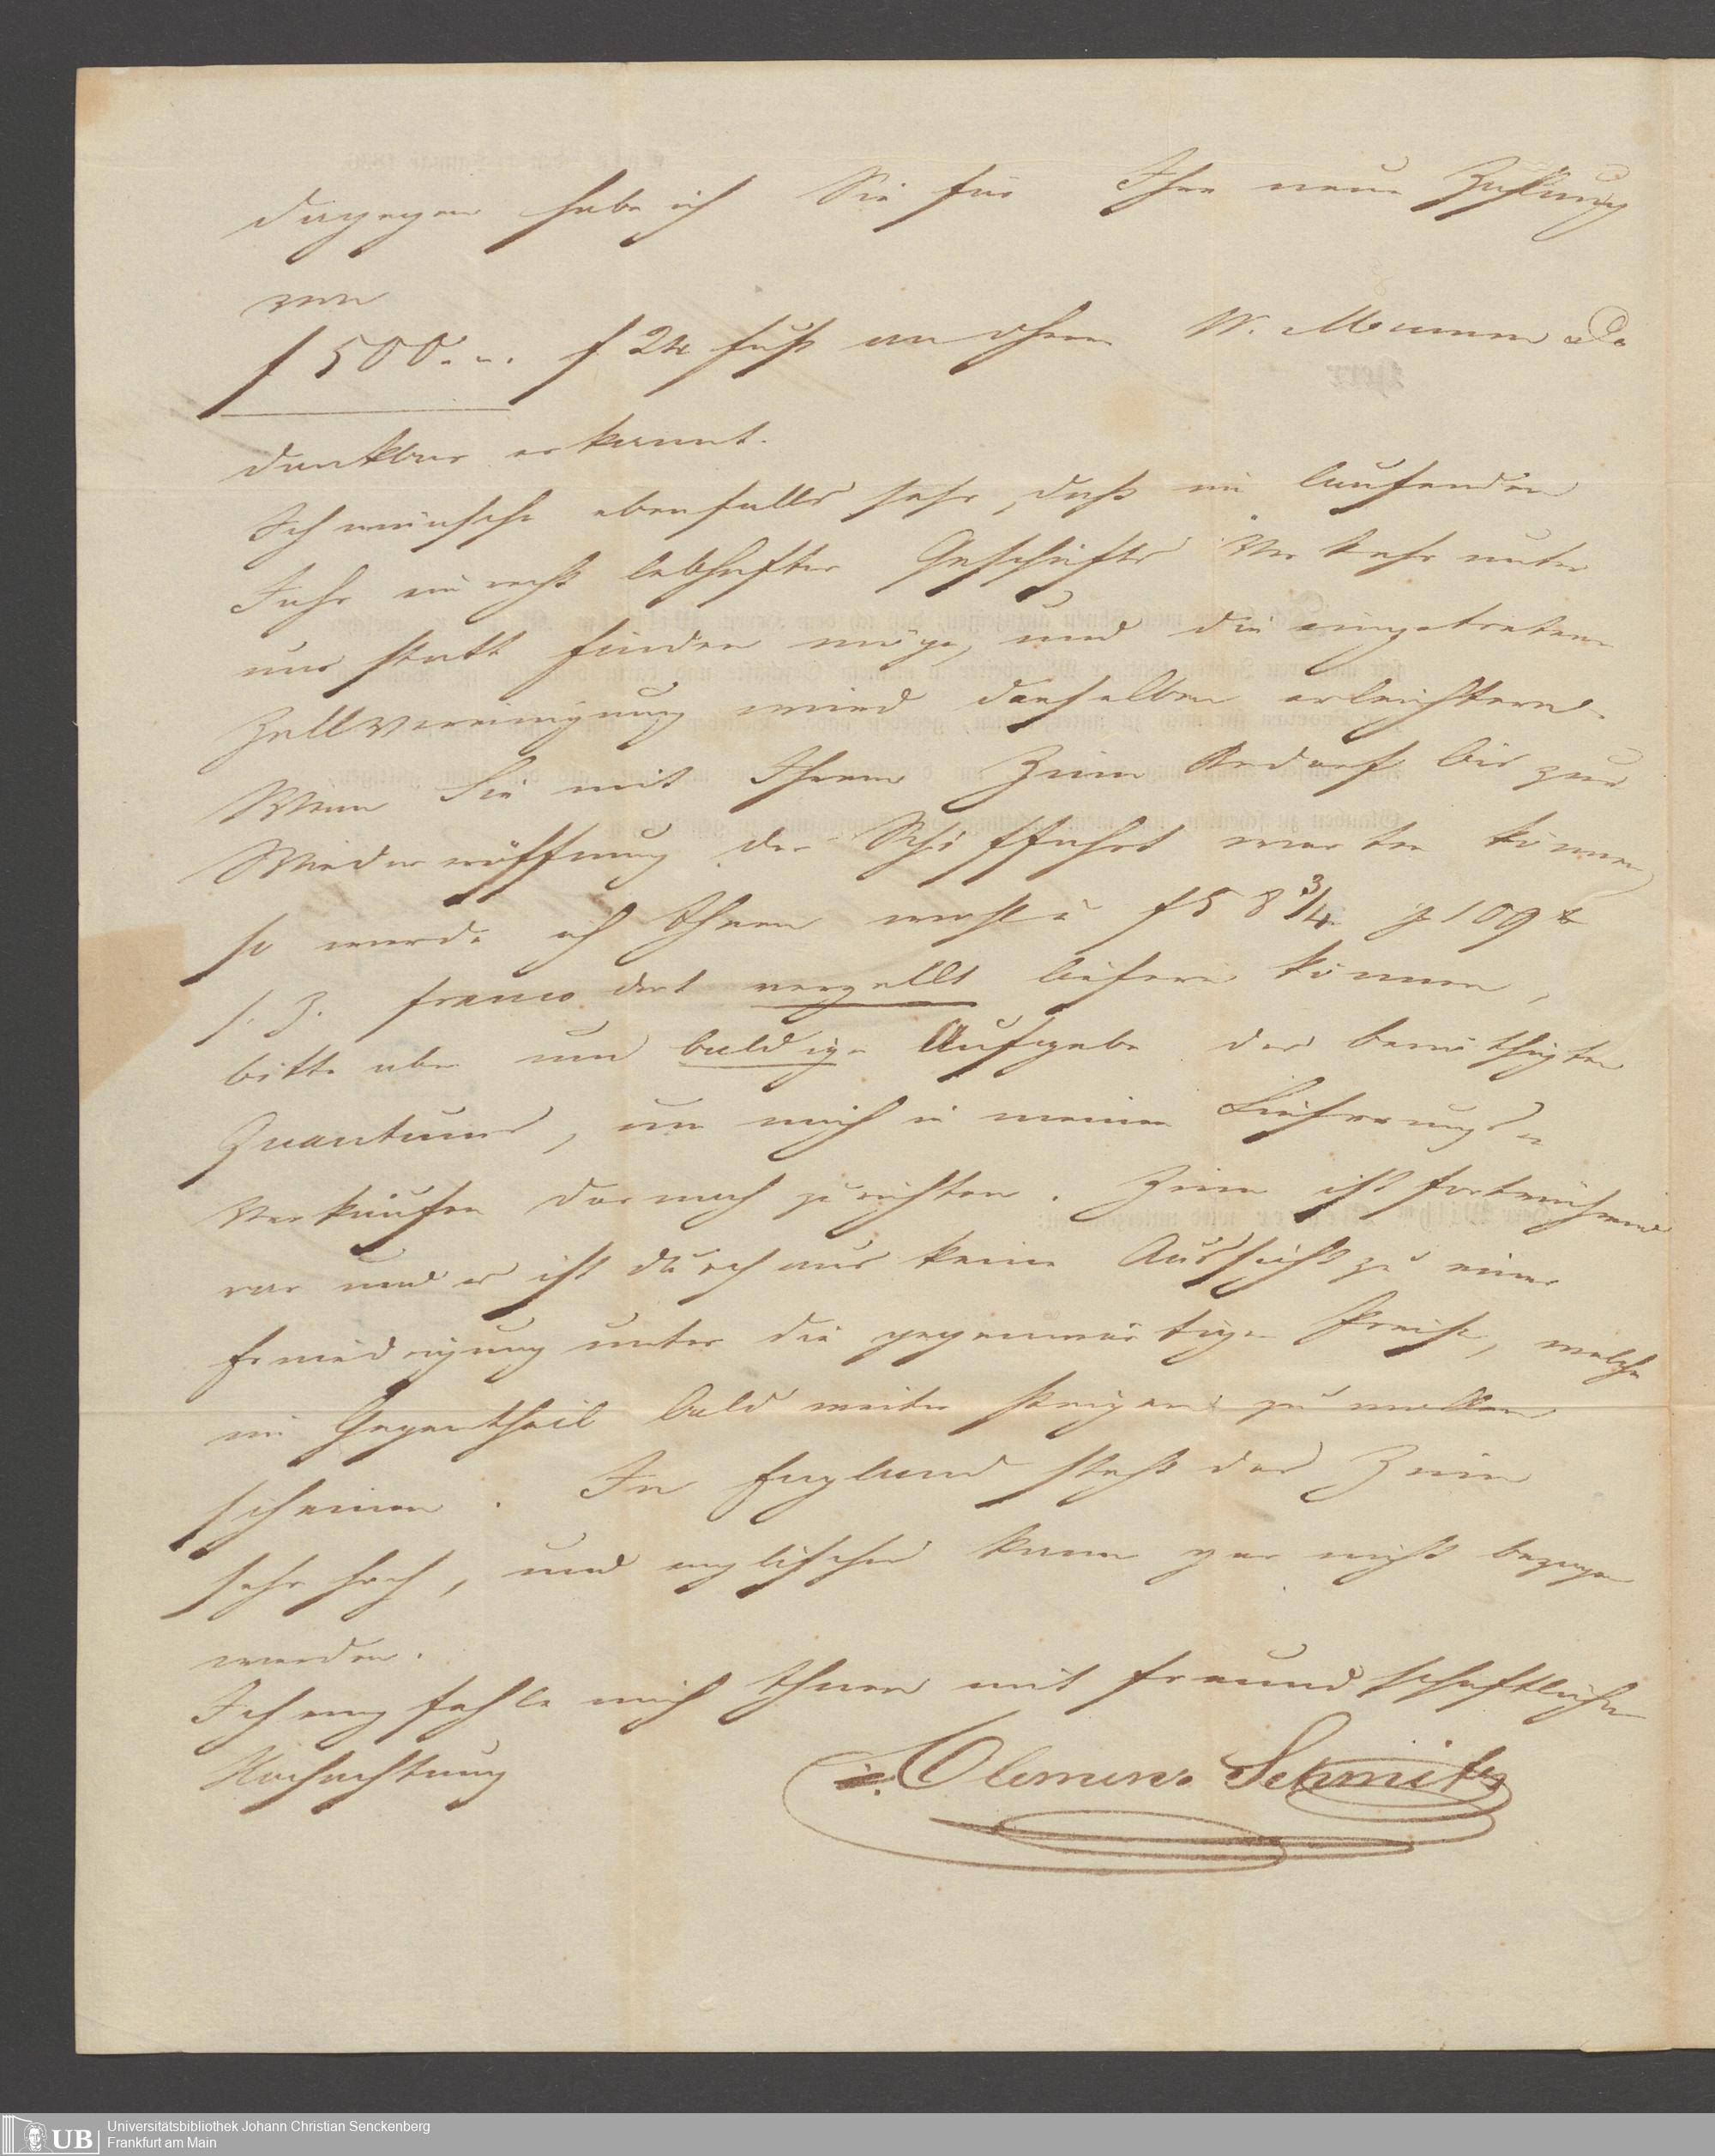 dagegen habe ich Sie für Ihre neue Zahlung
von
f 500.-. f 24 fuß an Herrn W. Mumm & Co
dankbar erkannt.
Ich wünsche ebenfalls sehr, daß im laufenden
Jahr ein recht lebhafter Geschäfts Verkehr unter
uns statt finden möge, und die eingetretene
Zollvereinigung wird denselben erleichtern.
Wenn Sie mit Ihrem Zinn Bedarf bis zur
Wiedereröffnung der Schifffahrt warten können,
so werde ich Ihnen wohl à f 58 3/4 p 109 ℔
s. Z. franco dort verzollt liefern können,
bitte aber um baldige Aufgabe des benöthigten
Quantums, um mich in meinen Lieferungs
Verkäufen darnach zu richten. Zinn ist fortwährend
rar und es ist durchaus keine Aussicht zu einer
Erniedrigung unter die gegenwärtigen Preise, welche
im Gegentheil bald weiter steigen zu wollen
scheinen. In England steht das Zinn
sehr hoch, und englisches kann gar nicht bezogen
werden.
Ich empfehle mich Ihnen mit freundschaftlicher
Hochachtung
Clemens Schmitz
UB Universitätsbibliothek Johann Christian Senckenberg
Frankfurt am Main